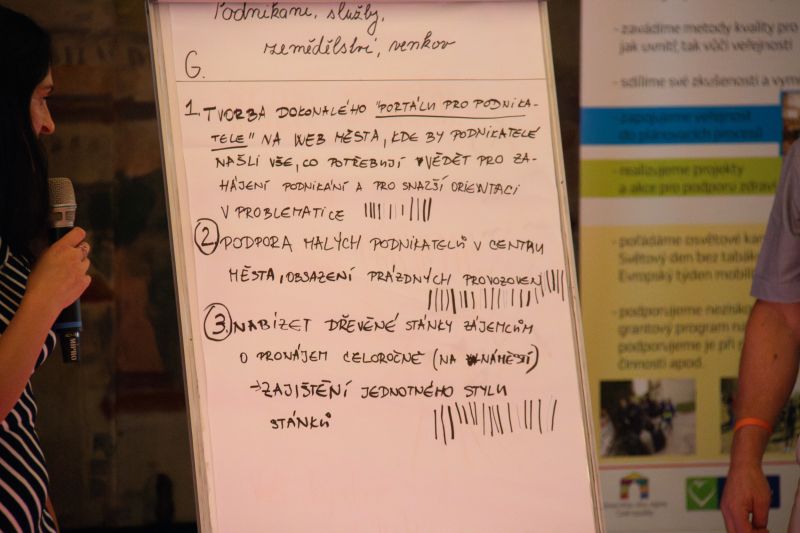 Podnikání, služby,
zemědělství, venkov
G.
1. TVORBA DOKONALÉHO "PORTÁLU PRO PODNIKA-
TELE" NA WEB MĚSTA, KDE BY PODNIKATELÉ
NAŠLI VŠE, CO POTŘEBUJÍ VĚDĚT PRO ZA-
HÁJENÍ PODNIKÁNÍ A PRO SNAZŠÍ ORIENTACI
V PROBLEMATICE
2. PODPORA MALÝCH PODNIKATELŮ V CENTRU
MĚSTA, OBSAZENÍ PRÁZDNÝCH PROVOZOVEN
3. NABÍZET DŘEVĚNÉ STÁNKY ZÁJEMCŮM
O PRONÁJEM CELOROČNĚ (NA NÁMĚSTÍ)
→ ZAJIŠTĚNÍ JEDNOTNÉHO STYLU
STÁNKŮ
- zavádíme metody kvality pro
jak uvnitř, tak vůči veřejnosti
- sdílíme své zkušenosti a vym
- zapojujeme veřejnost
do plánovacích procesů
- realizujeme projekty
a akce pro podporu zdraví
- pořádáme osvětové kam
Světový den bez tabáku
Evropský týden mobility
- podporujeme nezisko
grantový program na
podporujeme je při
činnosti apod.
MIPRO